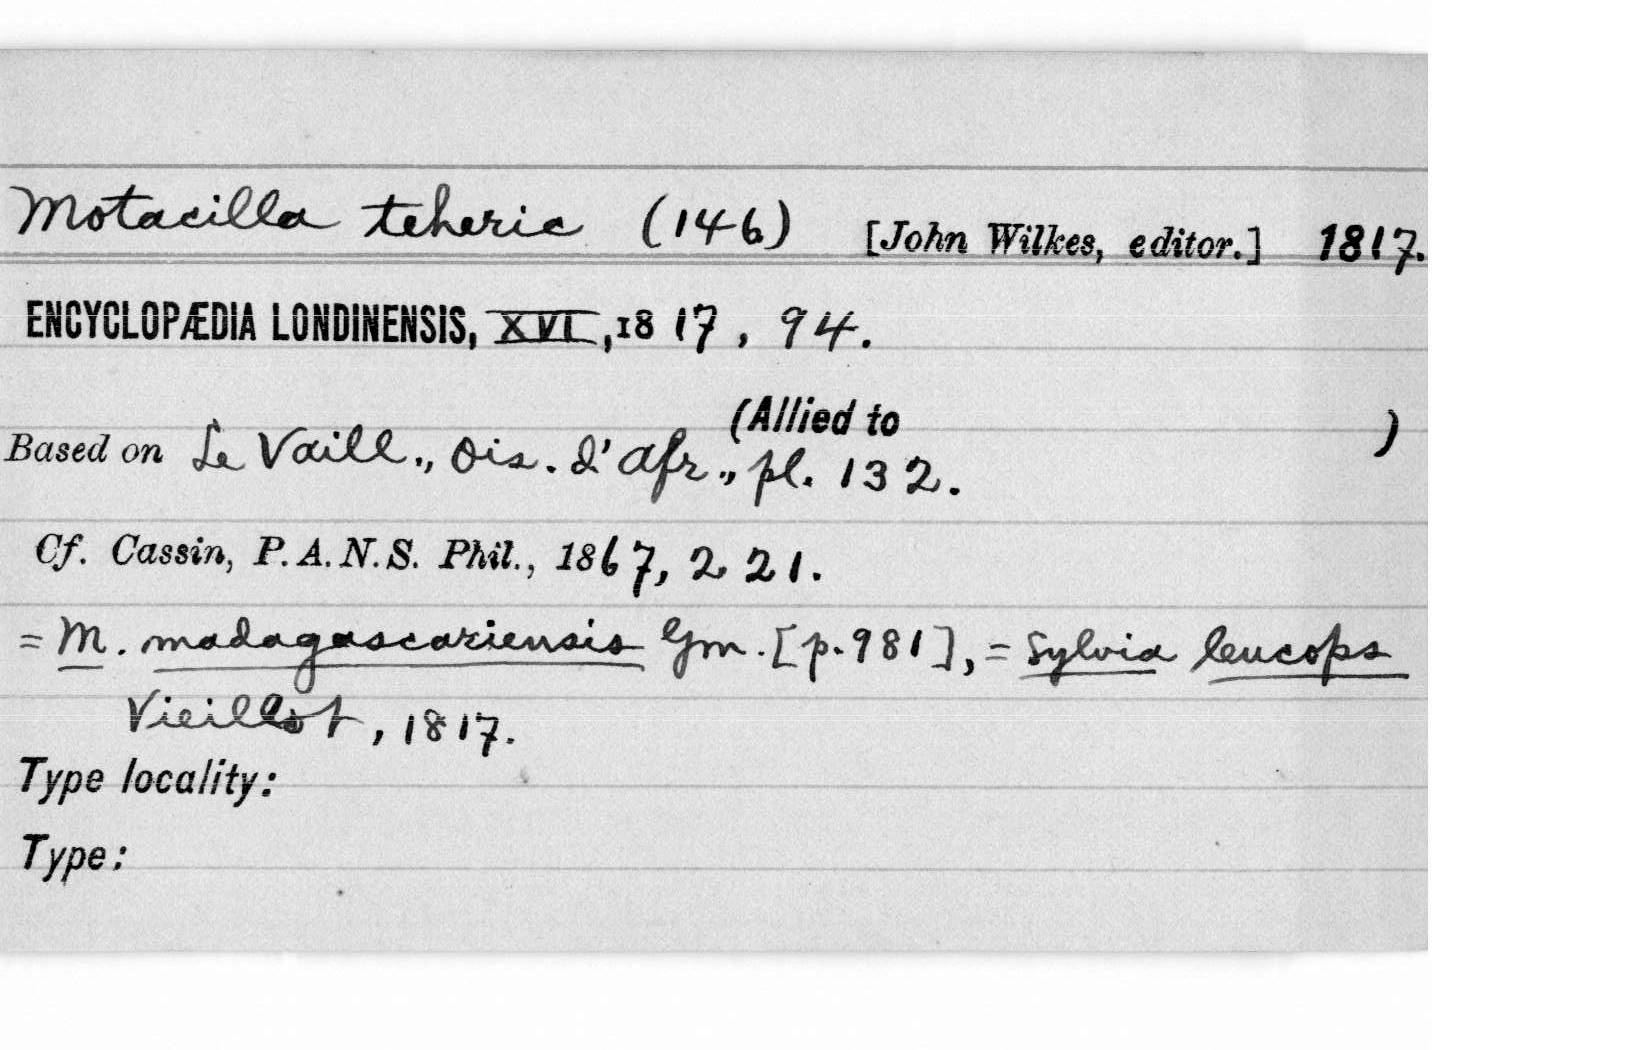 Motacilla teheric (146) [John Wilkes, editor.] 1817.
ENCYCLOPÆDIA LONDINENSIS, XVI, 1817, 94.
(Allied to )
Based on Le Vaill., Ois. d'Afr., pl. 132.
Cf. Cassin, P.A.N.S. Phil., 1867, 221.
= M. madagascariensis Gm. [p.981], = Sylvia leucops
Vieillot, 1817.
Type locality:
Type: